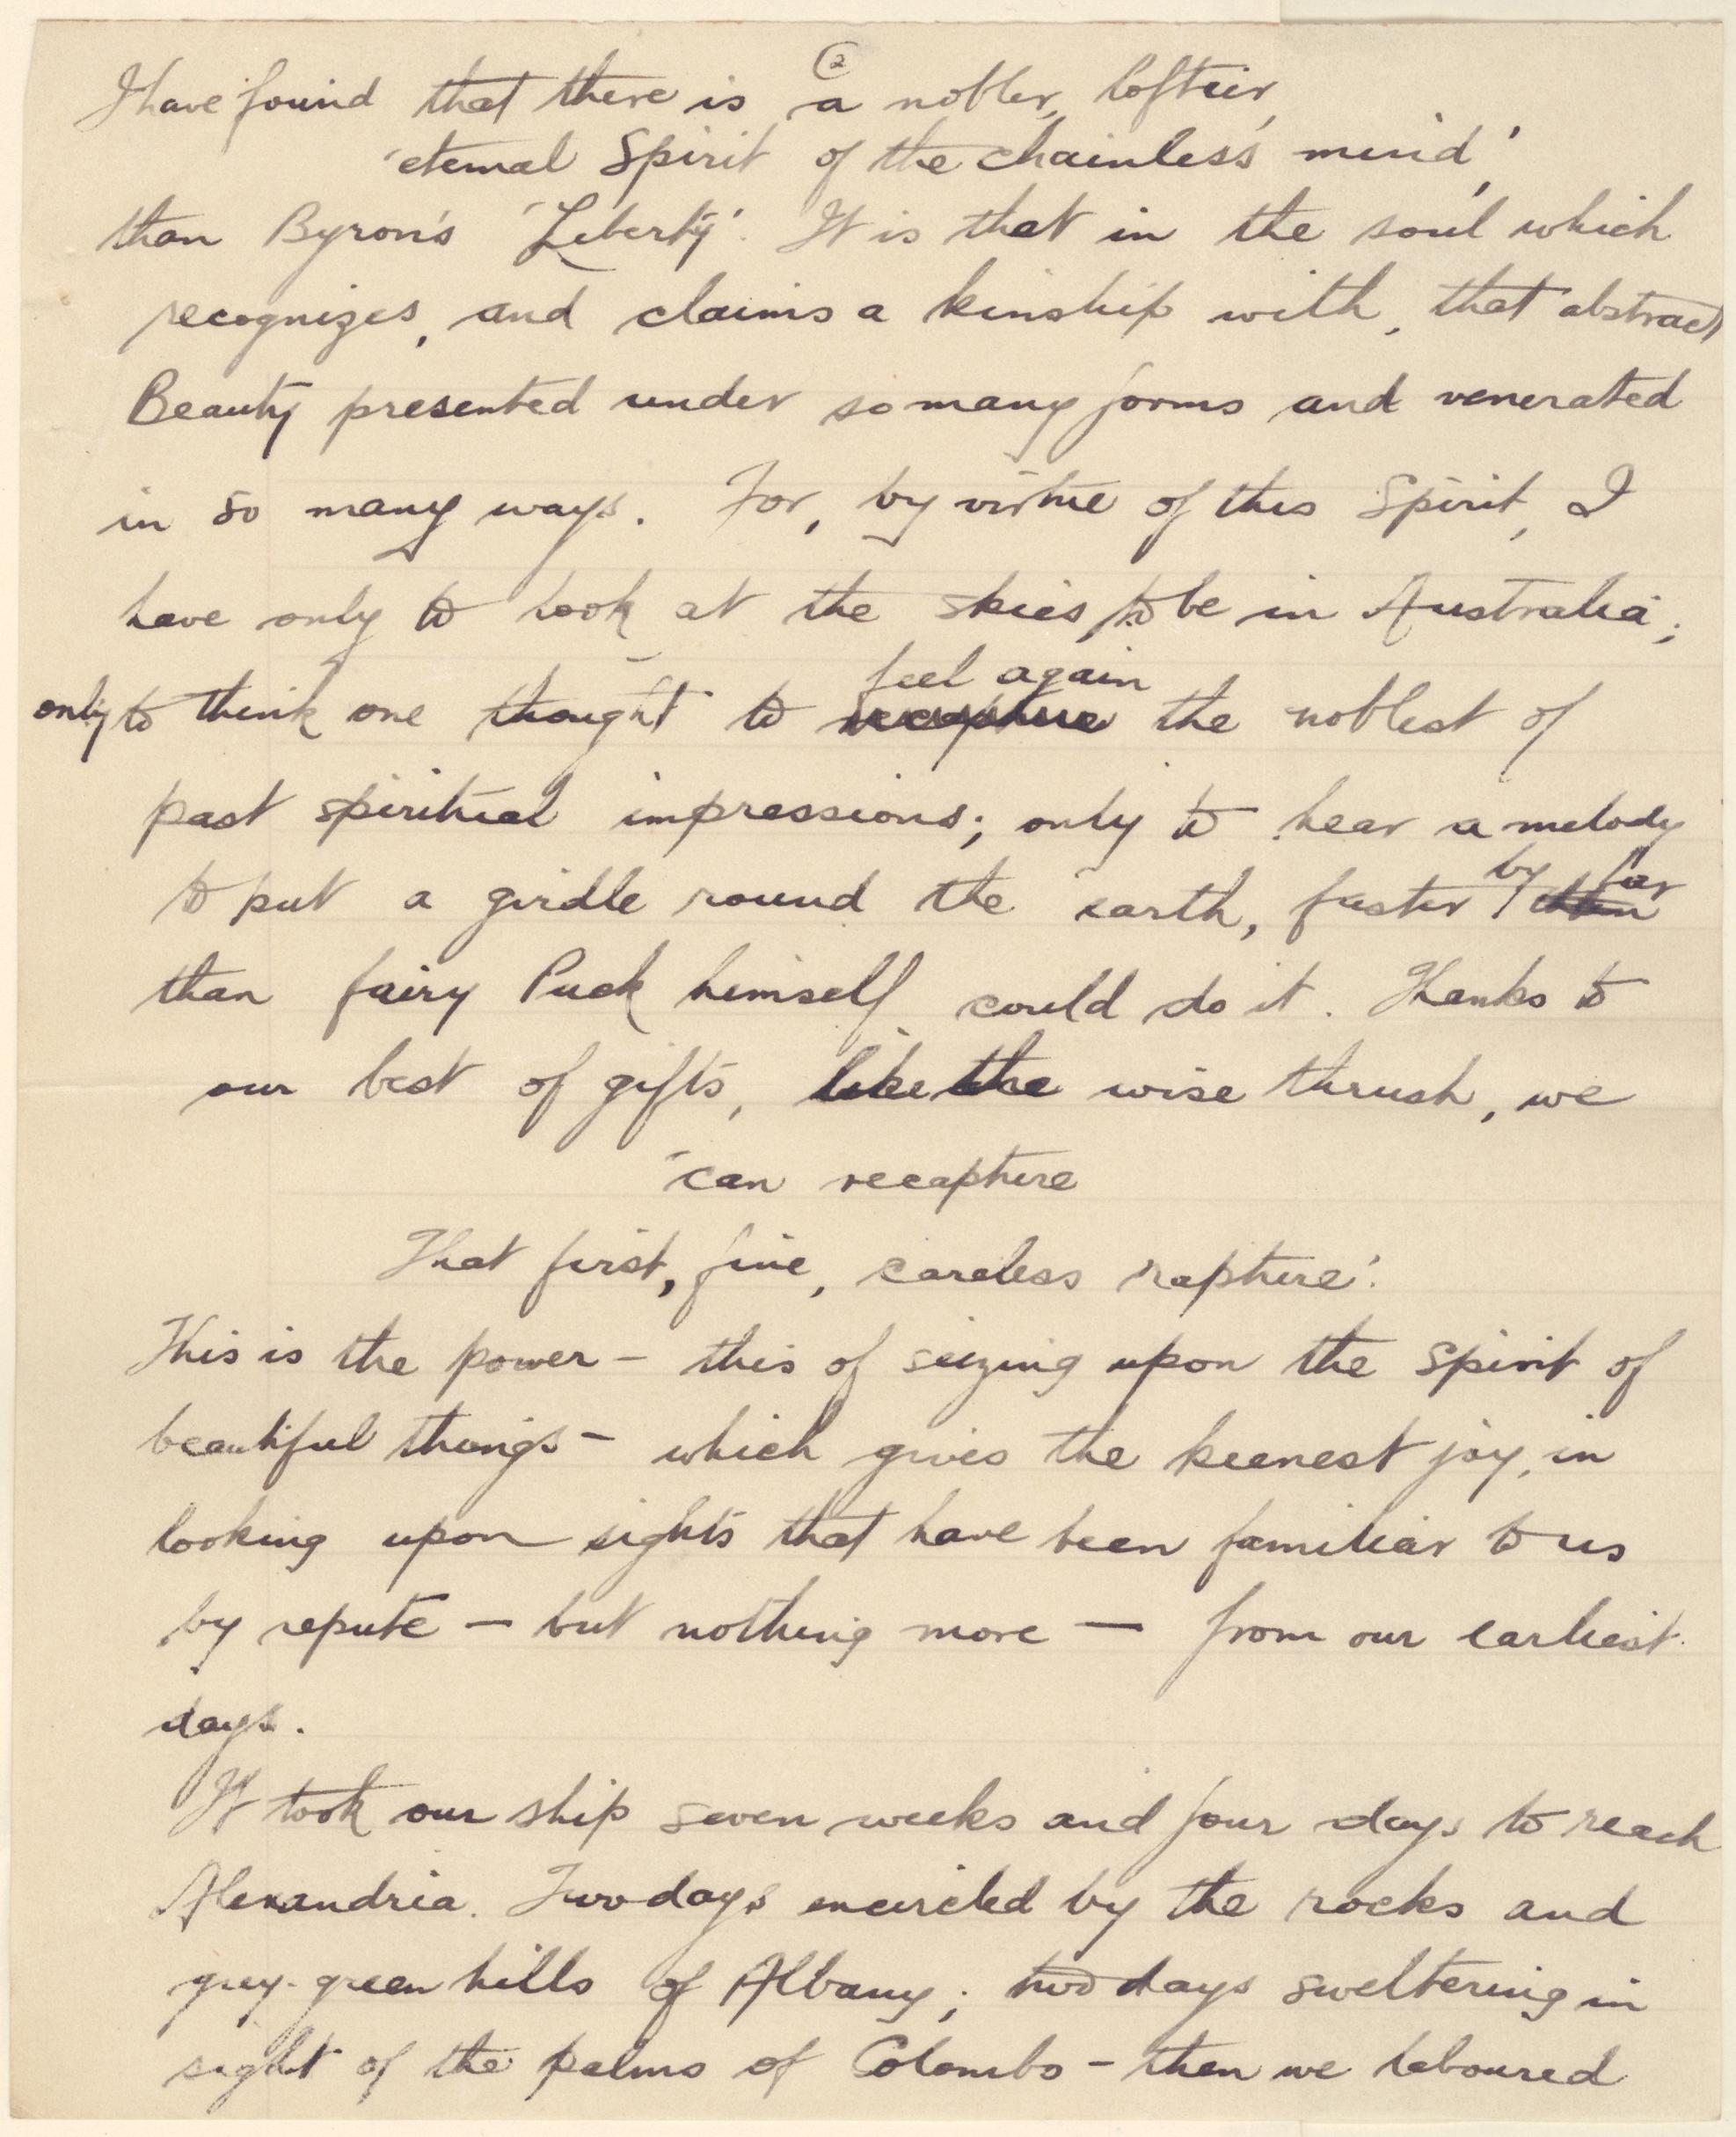 2
I have found that there is a nobler, loftier,
'eternal Spirit of the chainless mind',
than Byron's 'Liberty'. It is that in the soul which
recognizes, and claims a kinship with, that abstract
Beauty presented under so many forms and venerated
in so many ways. For, by virtue of this Spirit, I
have only to look at the skies, to be in Australia;
feel again
only to think one thought to recapture the noblest of
past spiritual impressions; only to hear a melody
by far
to put a girdle round the earth, faster
than fairy Puck himself could do it. Thanks to
our best of gifts, like the wise thrush, we
'can recapture
That first, fine, careless rapture'.
This is the power – this of seizing upon the spirit of
beautiful things – which gives the keenest joy, in
looking upon sights that have been familiar to us
by repute – but nothing more – from our earliest
days.
It took our ship seven weeks and four days to reach
Alexandria. Two days encircled by the rocks and
grey-green hills of Albany; two days sweltering in
sight of the palms of Colombo – then we laboured